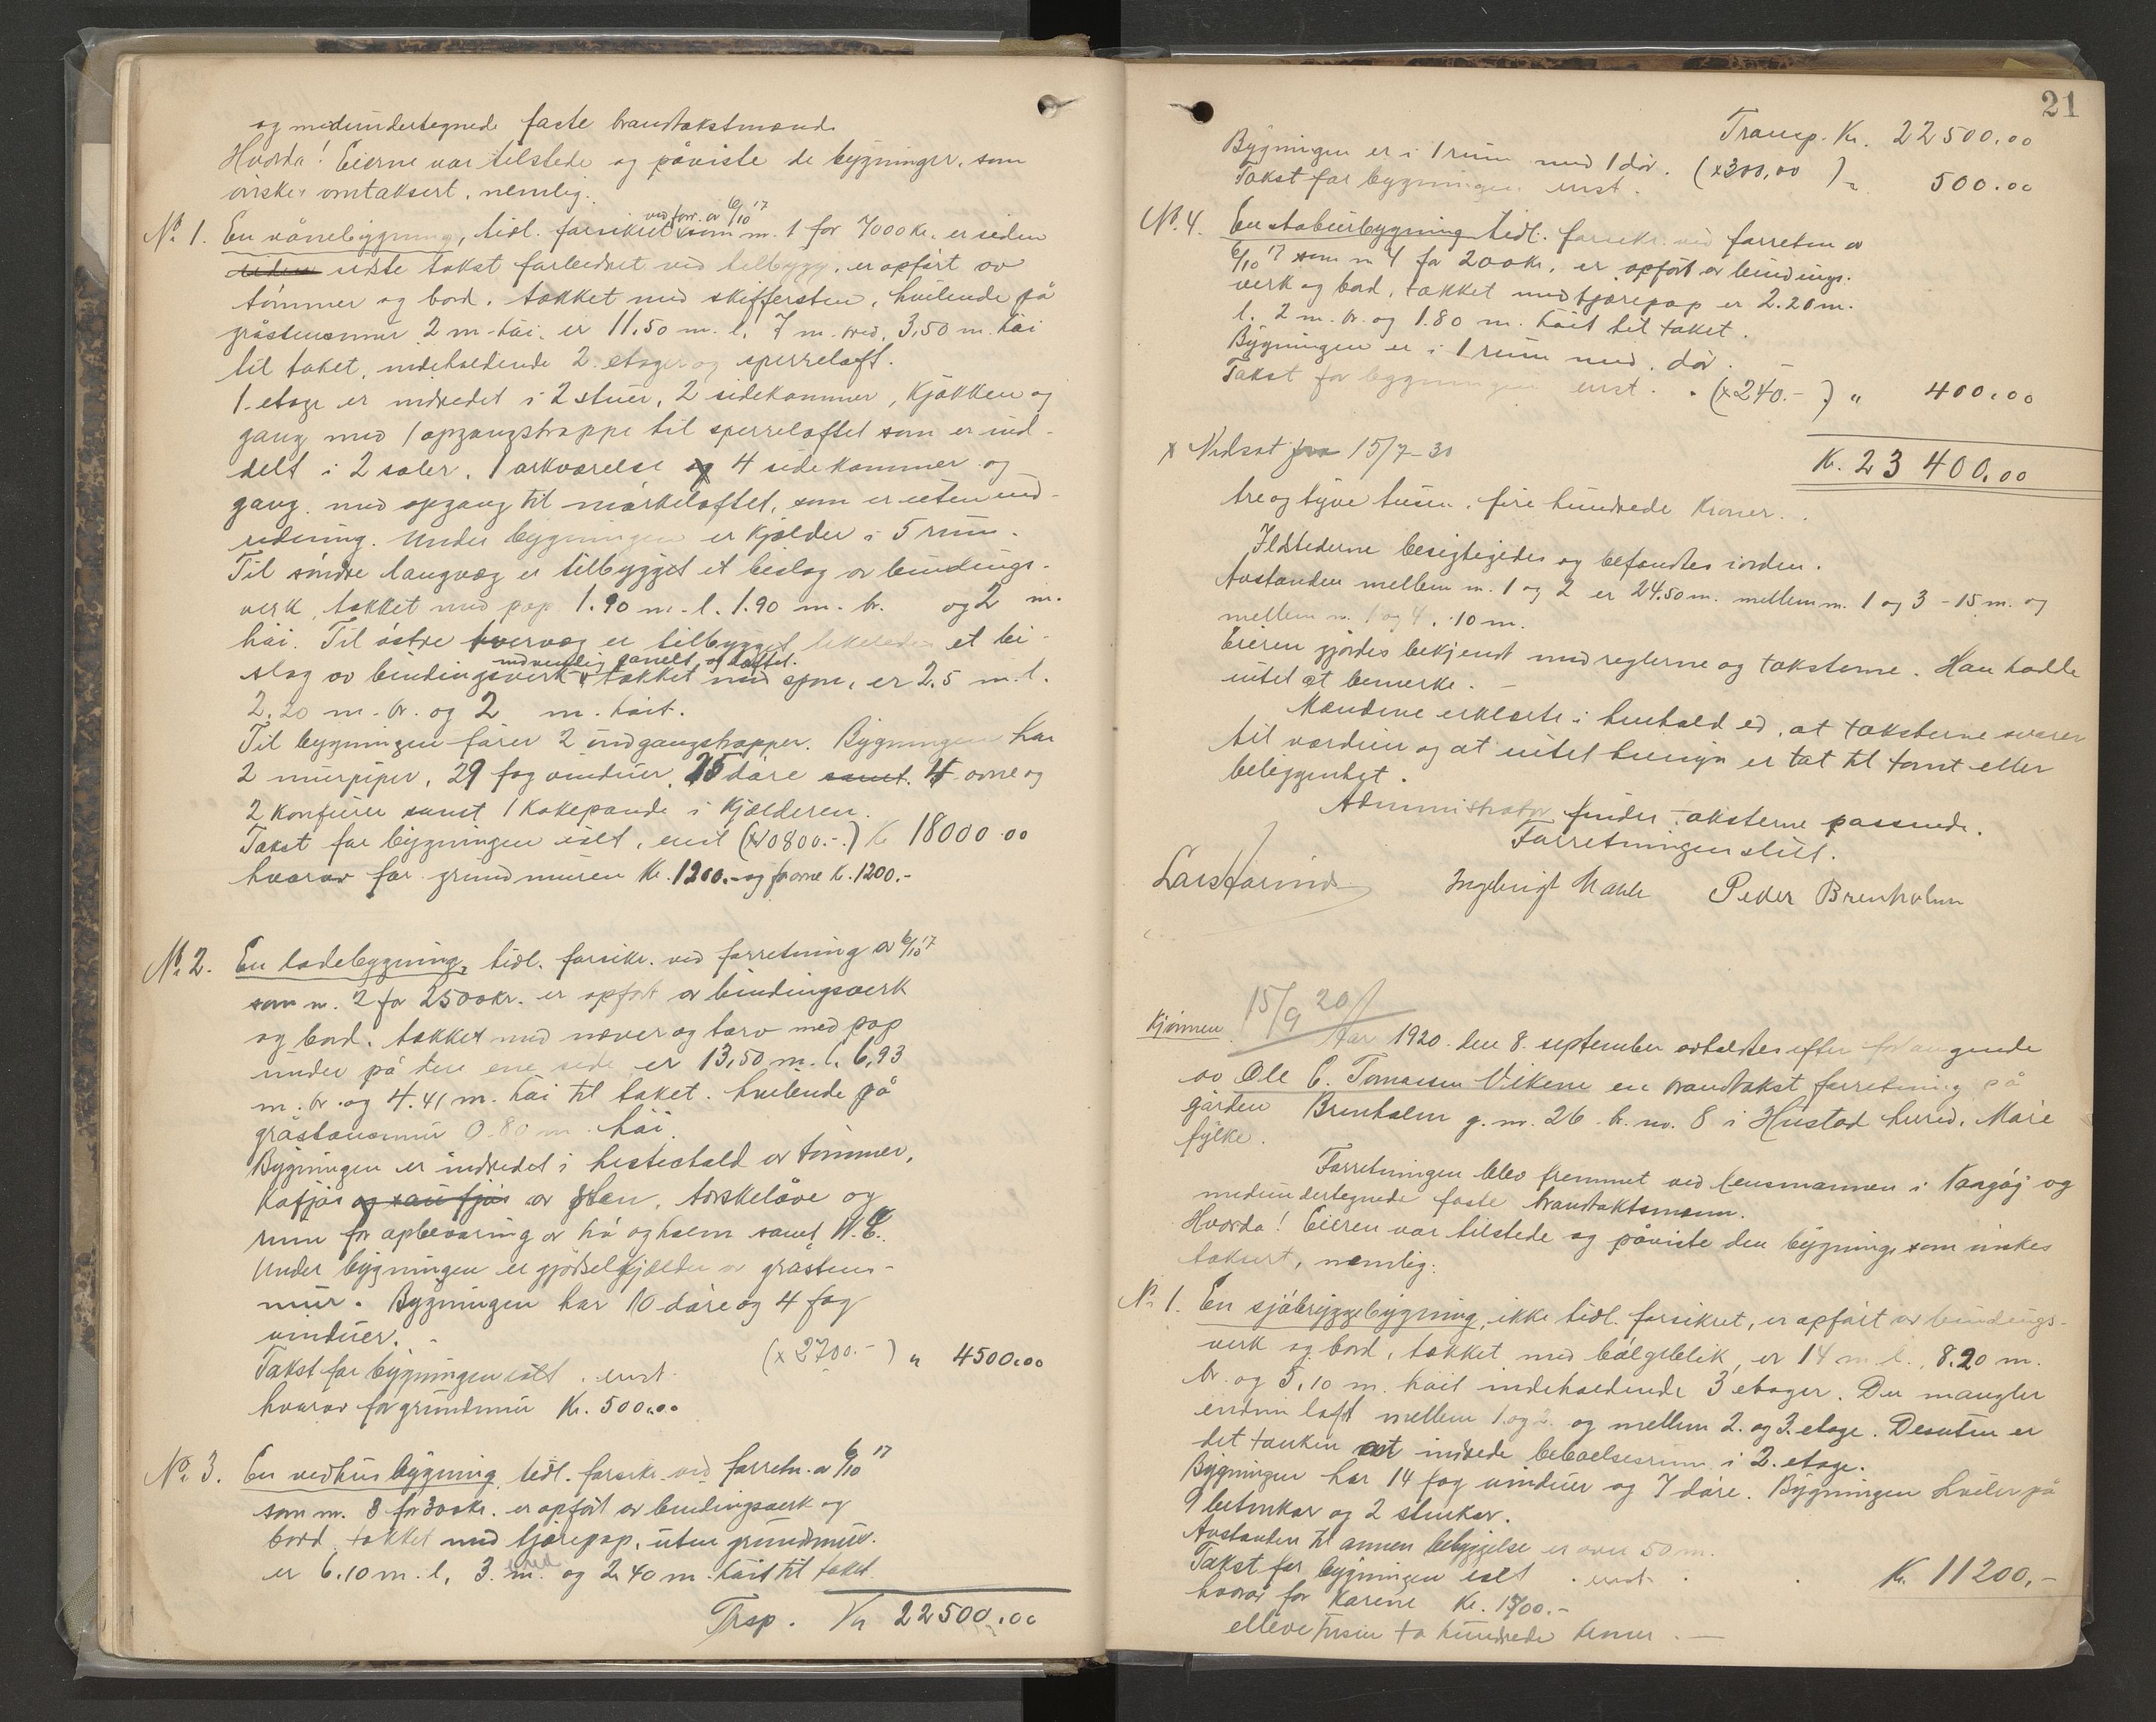 og medundertegnede faste brandtakstmænd.
Hvorda! Eierne var tilstede og påviste de bygninger, som
ønskes omtaksert, nemlig:
No. 1. En vånebygning, tidl. forsikret ved forr. av 6/10 17 som nr. 1 for 7000 kr. er siden
siden siste takst forbedret ved tilbygg, er opført av
tømmer og bord, tækket med skiffersten, hvilende på
gråstensmur 2 m. høi, er 11,50 m. l. 7 m. bred, 3,50 m. høi
til taket, indeholdende 2 etager og sperreloft.
1. etage er indredet i 2 stuer, 2 sidekammer, kjøkken og
gang med 1 opgangstrappe til sperreloftet som er ind-
delt i 2 saler, 1 arkværelse og 4 sidekammer og
gang med opgang til mørkeloftet, som er uten ind-
redning. Under bygningen er kjælder i 5 rum.
Til søndre langvæg er tilbygget et bislag av bindings-
verk, tækket med pap 1.90 m. l. 1.90 m. br. og 2 m.
høi. Til østre tvervæg er tilbygget likeledes et bi-
slag av bindingsverk indvendig panelt og loftet. tækket med spon, er 2,5 m. l.
2,20 m. br. og 2 m. høit.
Til bygningen fører 2 indgangstrapper. Bygningen har
2 murpiper, 29 fag vinduer, 25 døre samt 4 ovne og
2 komfurer samt 1 kokepande i kjælderen.
Takst for bygningen ialt, enst (x10800.-) Kr. 18000.00
hvorav for grundmuren Kr. 1200.- og for ovne K. 1200.-
No. 2. En ladebygning, tidl. forsikr. ved forretning av 6/10 17
som nr. 2 for 2500 kr. er opført av bindingsverk
og bord, tækket med næver og torv med pap
under på den ene side er 13,50 m. l. 6,93
m. br. og 4.41 m. høi til taket, hvilende på
gråstensmur 0.80 m. høi.
Bygningen er indredet i hestestald av tømmer,
kofjøs og saufjøs av sten, tørskelåve og
rum for opbevaring av hø og halm samt W.C.
Under bygningen er gjødselkjælder av gråstens-
mur. Bygningen har 10 døre og 4 fag
vinduer.
Takst for bygningen ialt, enst. (x 2700.-) " 4500.00
hvorav for grundmur Kr. 500.00
No. 3. En vedhusbygning tidl. forsikr. ved forretn. av 6/10 17
som nr. 3 for 300 kr. er opført av bindingsverk og
bord, tækket med tjærepap, uten grundmur.
er 6.10 m. l. 3. m. bred og 2.40 m. høit til taket.
Trsp. Kr 22500.00
21
Transp. Kr. 22500.00
Bygningen er i 1 rum med 1 dør.
Takst for bygningen enst. (x300,00) " 500.00
No. 4. En stabursbygning tidl. forsikr. ved forretn av
6/10 17 som nr 4 for 200 kr, er opført av bindings-
verk og bord, tækket med tjærepap er 2.20 m.
l. 2 m. br. og 1.80 m. høit til taket.
Bygningen er i 1 rum med dør.
Takst for bygningen enst. (x240.-) " 400.00
x Nedsat fra 15/7-30
K. 23400.00
tre og tyve tusen, fire hundrede kroner.
Ildstederne besigtigedes og befandtes iorden.
Avstanden mellem nr. 1 og 2 er 24.50 m. mellem nr. 1 og 3 - 15 m. og
mellem nr. 1 og 4, 10 m.
Eieren gjordes bekjendt med reglerne og taksterne. Han hadde
intet at bemerke.
Mændene erklærte i henhold ed, at taksterne svarer
til værdien og at intet hensyn er tat til tomt eller
beliggenhet.
Administrator finder taksterne passende.
Forretningen slut.
Lars Farinds Ingebrigt Male Peder Brenholm
15/9 20
Kjønnen
Aar 1920 den 8. september avholdtes efter forlangende
av Ole C. Tomassen Vikene en brandtakst forretning på
gården Brenholm g. nr. 26 b. nr. 8 i Hustad hered, Møre
fylke.
Forretningen blev fremmet ved lensmannen i Vaagøj og
medundertegnede faste brandtakstmænn.
Hvorda! Eieren var tilstede og påviste den bygning, som ønskes
taksert, nemlig:
No. 1. En sjøbryggebygning, ikke tidl. forsikret, er opført av bindings-
verk og bord, tækket med bølgeblik, er 14 m. l. 8.20 m.
br. og 5,10 m. høit indeholdende 3 etager. Der mangler
endnu loft mellem 1. og 2. og mellem 2. og 3. etage. Desuten er
det tanken at indrede beboelsesrum i 2. etage.
Bygningen har 14 fag vinduer og 7 døre. Bygningen hviler på
9 betonkar og 2 stenkar.
Avstanden til annen bebyggelse er over 50 m.
Takst for bygningen ialt enst. K. 11200,-
hvorav for karene Kr. 1700.-
elleve tusen to hundrede kroner.